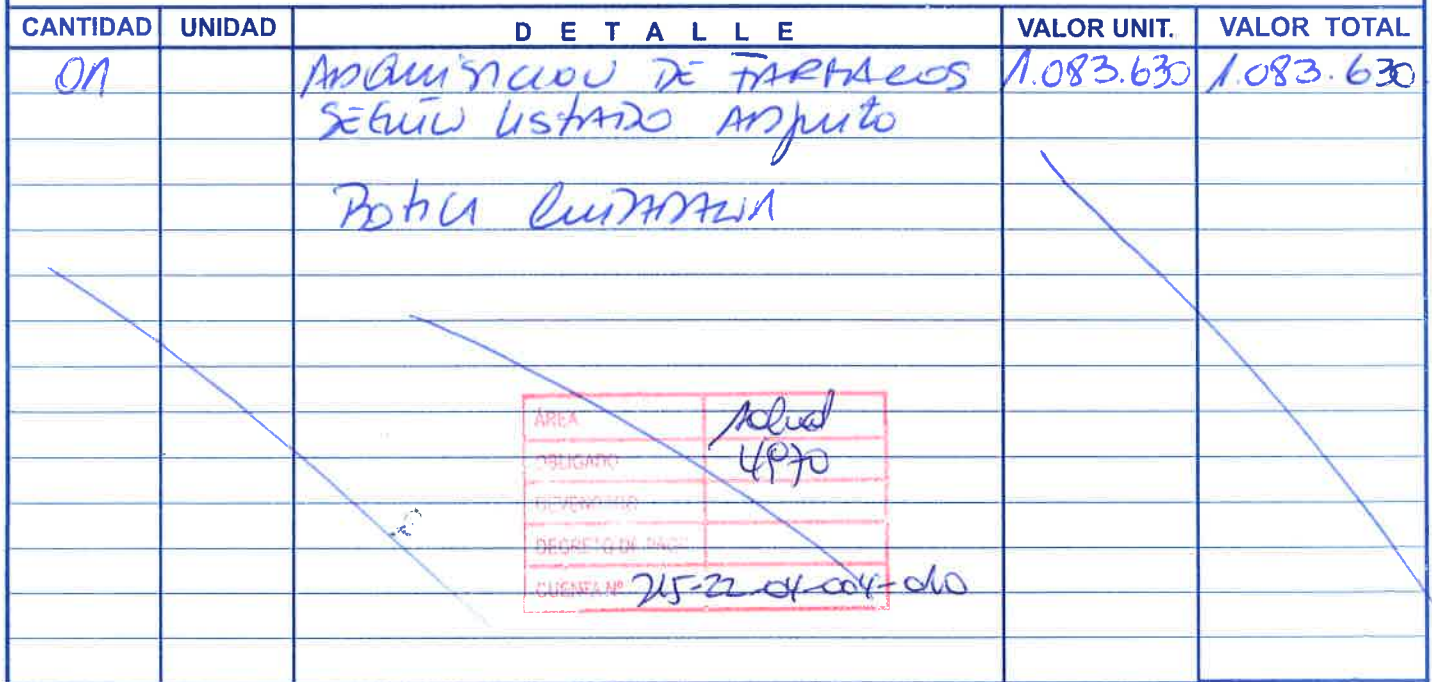 CANTIDAD UNIDAD DETALLE VALOR UNIT. VALOR TOTAL
01 ADQUISICION DE FARMACOS 1.083.630 1.083.630
SEGÚN LISTADO ADJUNTO
Botica CIUDADANA
ÁREA Salud
OBLIGADO 4970
DEVENGADO
DECRETO DE PAGO
CUENTA Nº 215-22-04-004-010